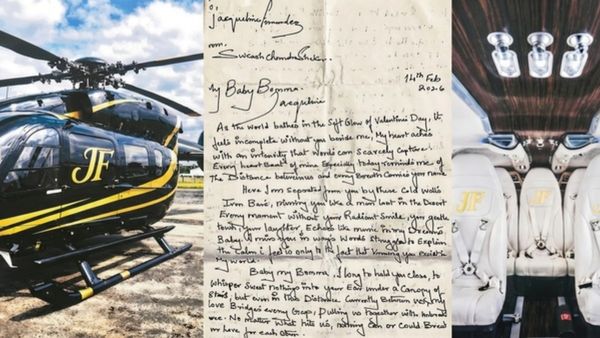 JF
To,
Jacqueline Fernandez
From:
Sukash Chandrashekar.
My Baby Bomma.
Jacqueline
14th Feb
2026
As the world bathes in the Soft Glow of Valentines Day, It
feels incomplete without you beside me, My heart aches
with an intensity that words can scarcely capture.
Every heart beat of mine, Especially today reminds me of
The Distance between us and every Breath Carries your name
Here I'm separated from you by these Cold Walls
Iron Bars, missing you like a man lost in the Desert
Every moment without your Radiant Smile, your gentle
touch, your laughter, Echoes like music in my Dreams
Baby, I miss you in ways Words struggle to Explain
the Calm I feel is only the fact that knowing you exist in
My world.
Baby my Bomma, I long to hold you close, to
Whisper Sweet nothings into your Ear under a Canopy of
Stars, but even in this Distance Currently Between us, my
love Bridges every Gap, Pulling us together with
One. No matter What hits us, nothing Can or Could Break
our love for each other.
JF
JF